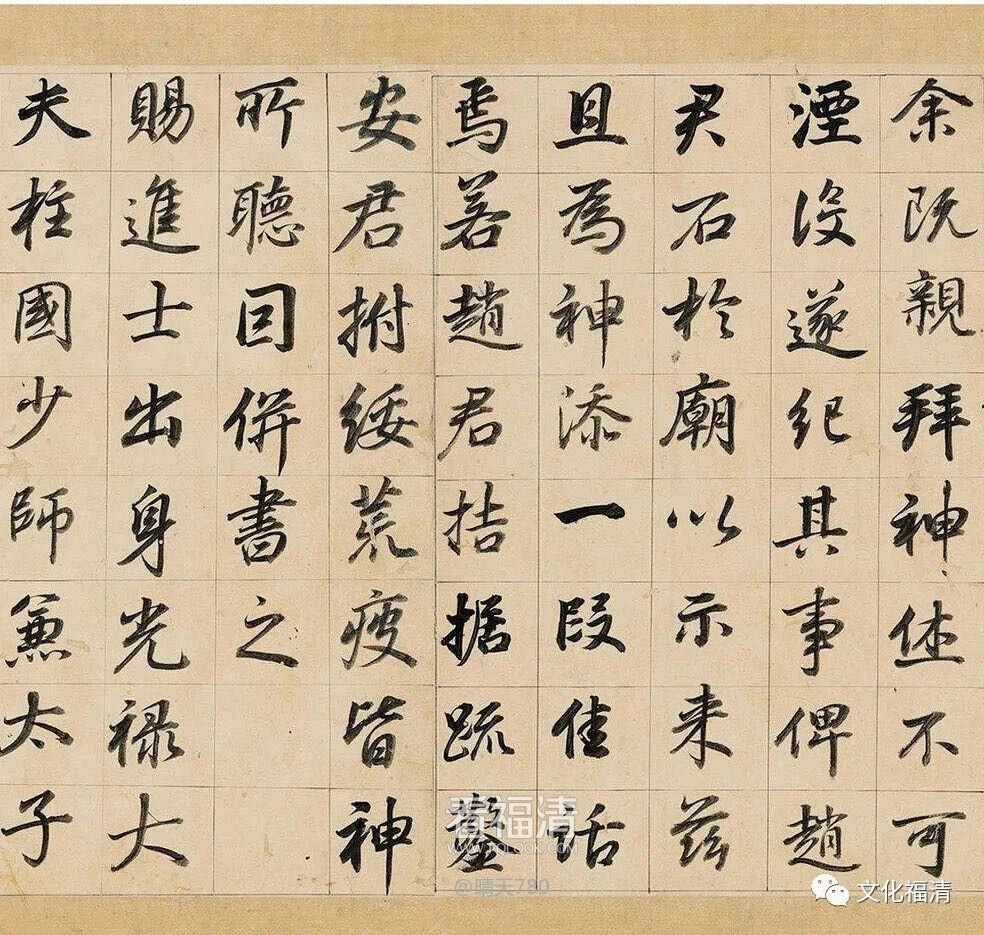 余既親拜神休不可
湮没遂紀其事俾趙
君石於廟以示来兹
且為神添一段佳話
焉若趙君拮据疏鑿
安君拊綏荒疲皆神
所聽囙併書之
賜進士出身光禄大
夫柱國少師兼太子
看福清
WWW.FQLOOK.COM
@晴天780
文化福清